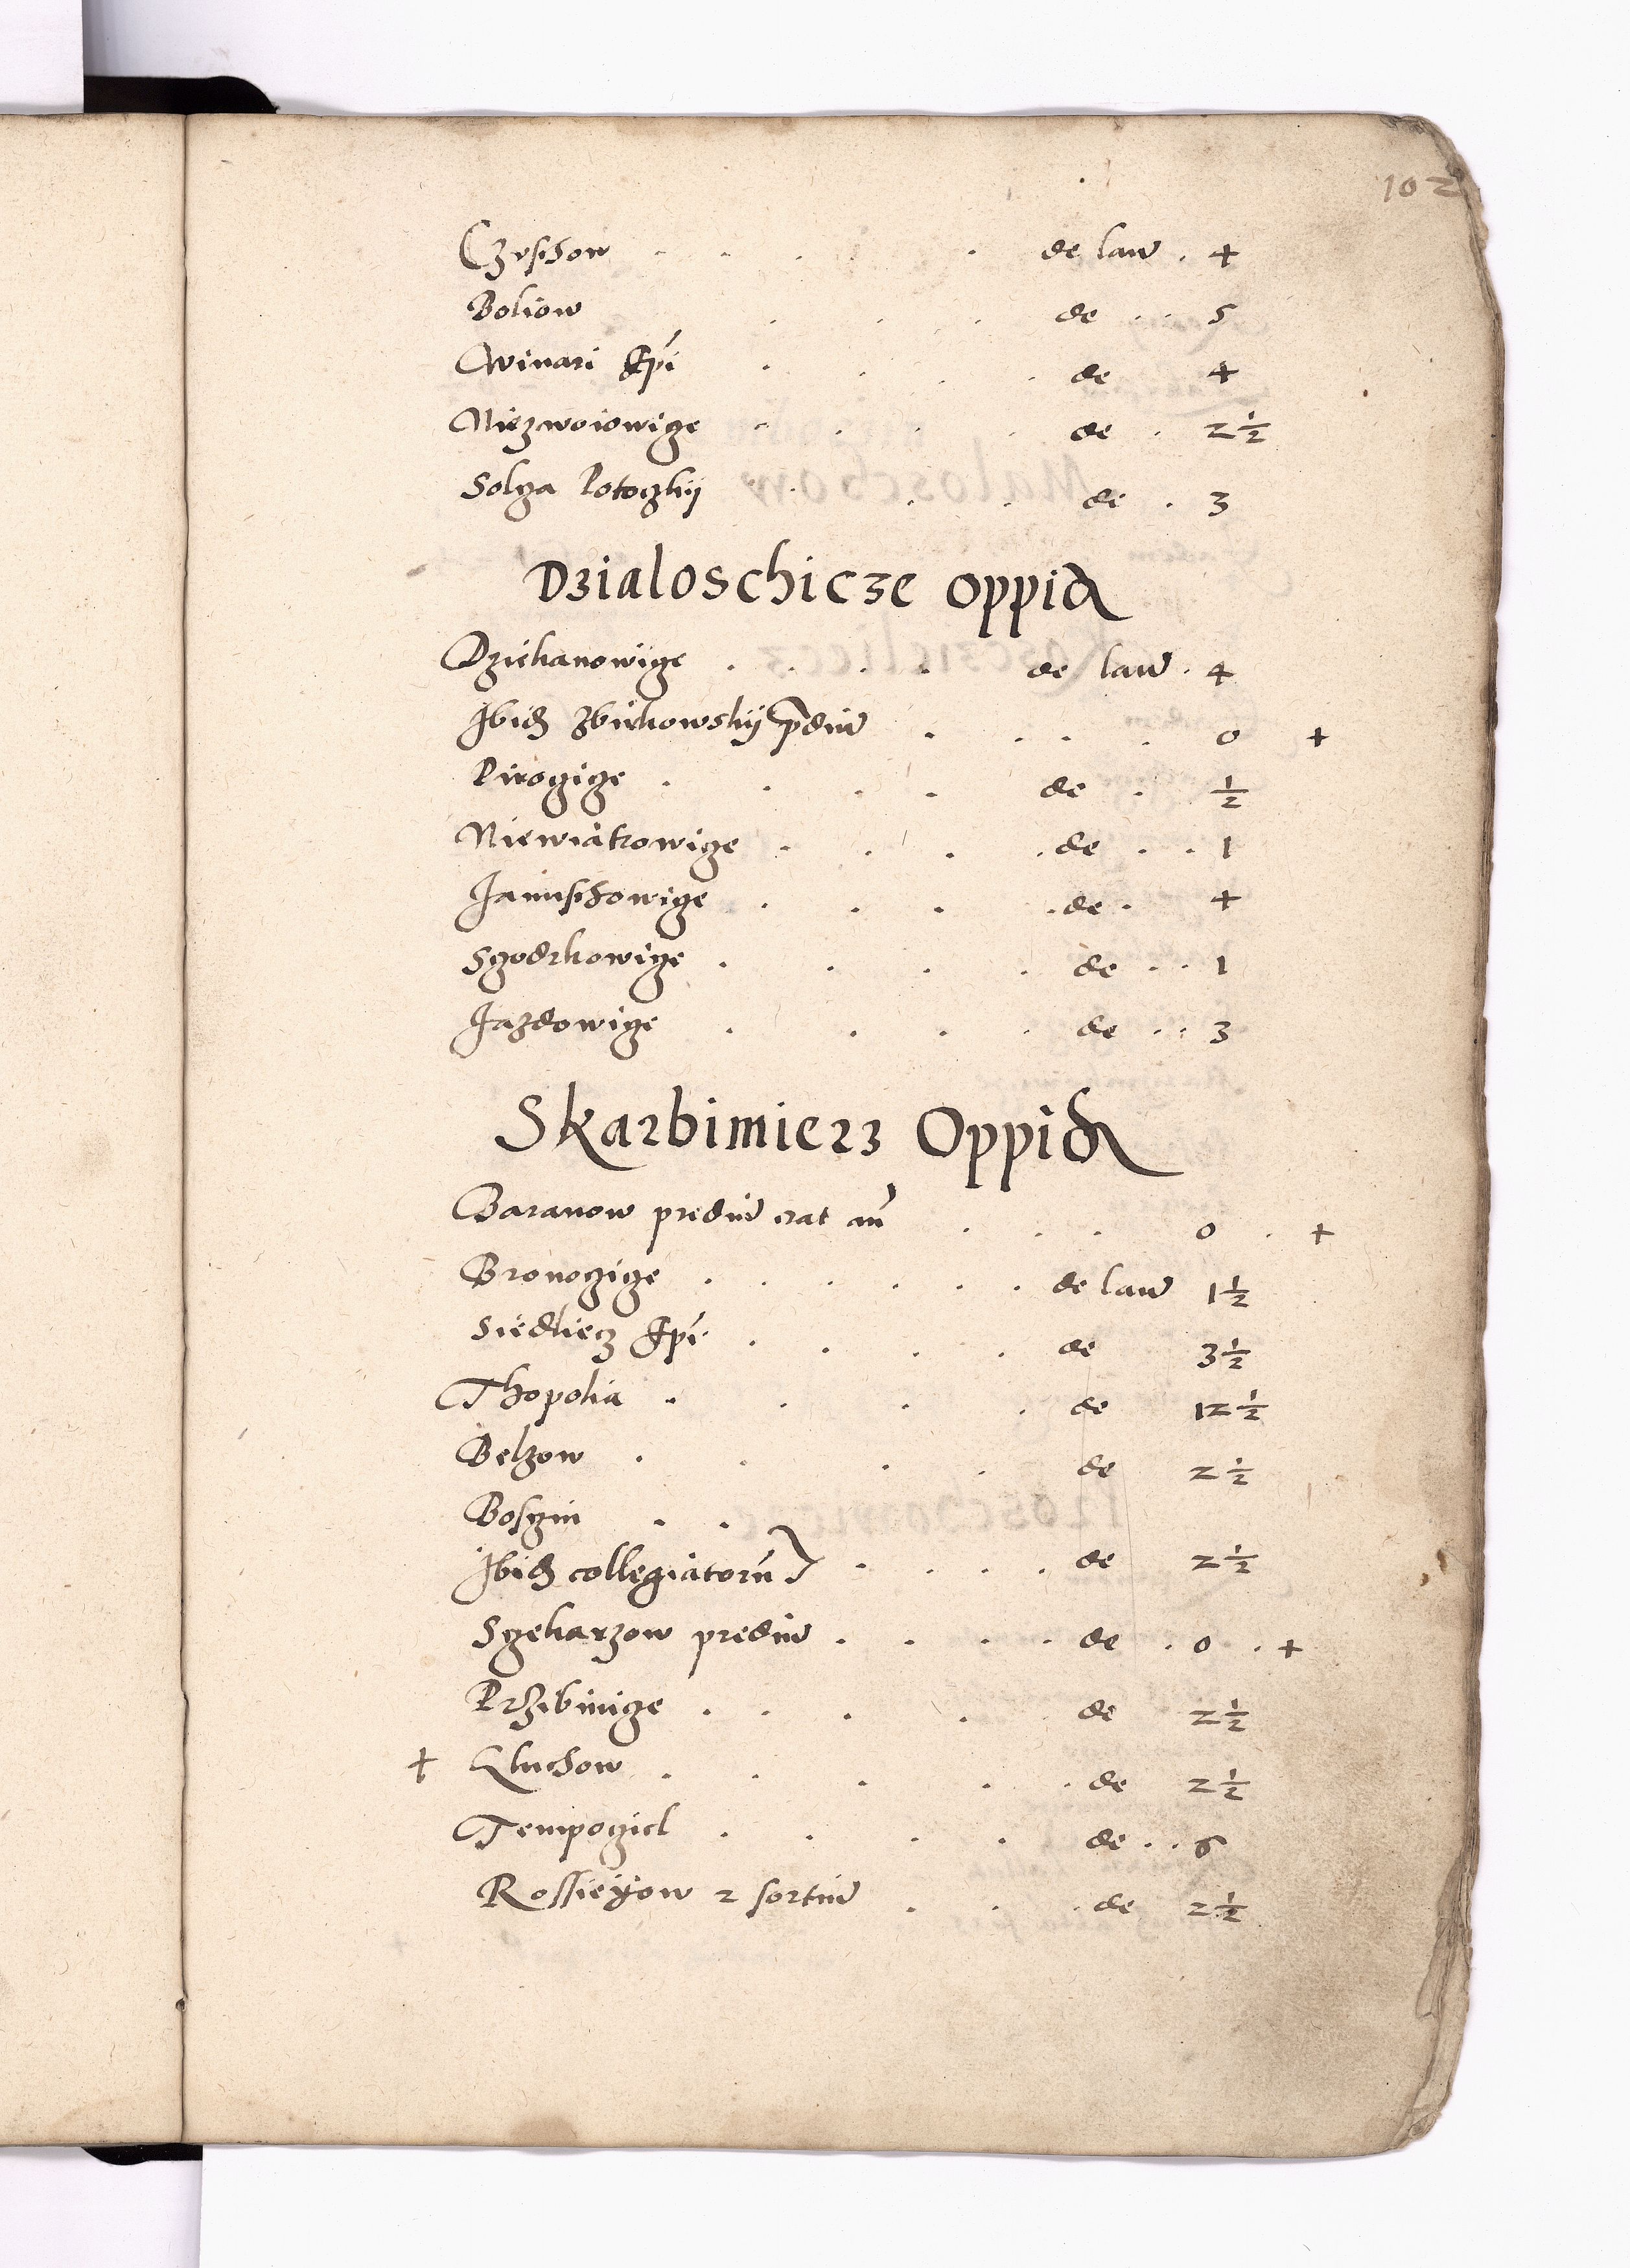 102
Czvschow . . . . de lan̄ . 4
Boliow . . . de . . 5
Winari Epī . . . . de 4
Niezwoiowicze . . . . de . 2 1/2
Solcza Potoczkij . . . de . 3
Dzialoschicze Oppid
Dziekanowicze . . . . de lan̄ . 4
Ibid Zbikowskij p̄diū . . . . 0 +
Pirocicze . . . . de . 1/2
Niewiatrowicze . . . . de . . 1
Januschowicze . . . . de . 4
Sczodrkowicze . . . . de . . 1
Jazdowicze . . . . de . . 3
Skarbimierz Oppid
Baranow prediū erat an̄ . . . 0 . +
Bronoczicze . . . . . . de lan̄ 1 1/2
Siedliecz Epī . . . . de 3 1/2
Thopolia . . . . de 12 1/2
Belzow . . . . de 2 1/2
Boszin . .
Ibid collegiatorū . . . . de 2 1/2
Sgekarzow prediū . . . . de . 0 . +
Przibinicze . . . . de 2 1/2
+ Kluchow . . . . . de 2 1/2
Tempoczicl . . . . de . . 6
Rossieyow 2 sortiū . . . de 2 1/2